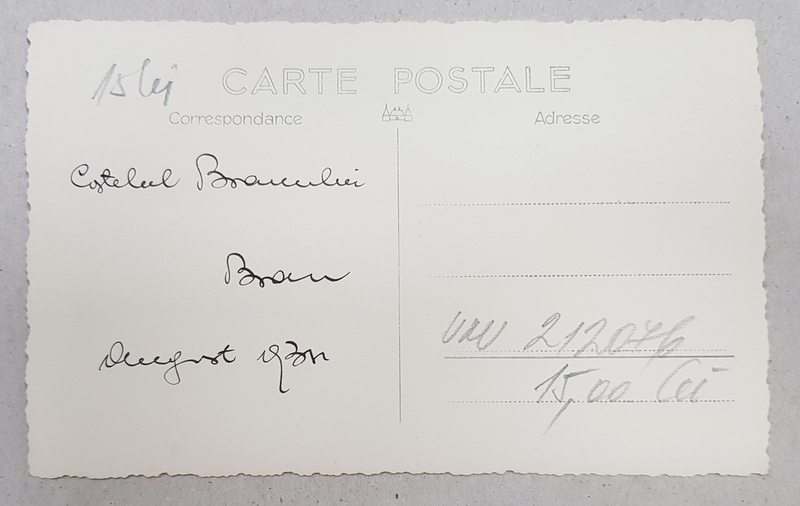 15 lei
CARTE POSTALE
Correspondance
Adresse
Castelul Branului
Bran
August
212076
15,00 lei